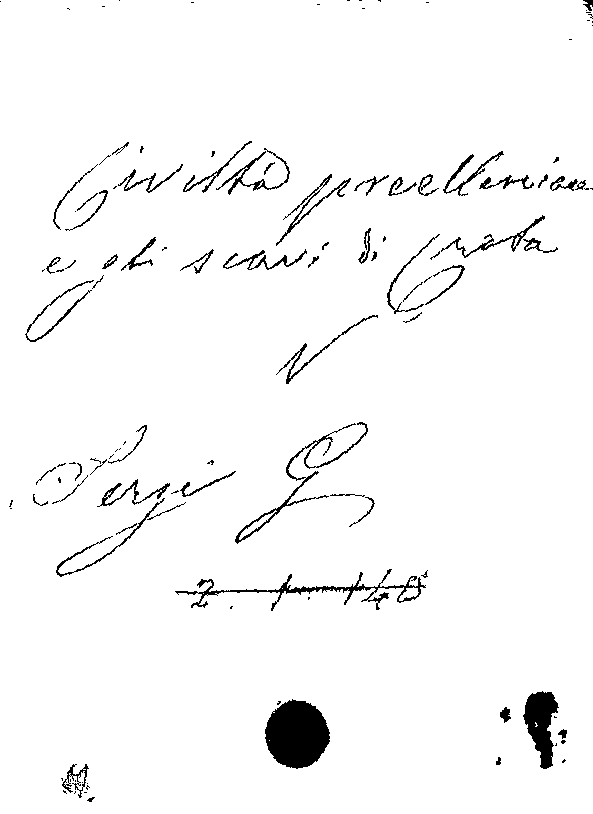 Civiltà preellenica
e gli scavi di Creta
V
Sergi G
2. 1. 148